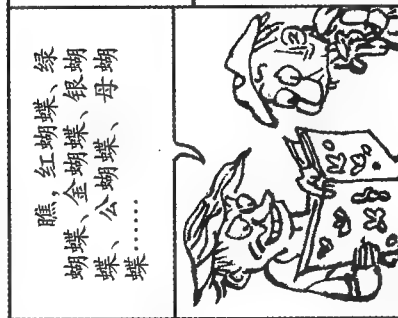 瞧，红蝴蝶、绿
蝴蝶、金蝴蝶、银蝴
蝶、公蝴蝶、母蝴
蝶……